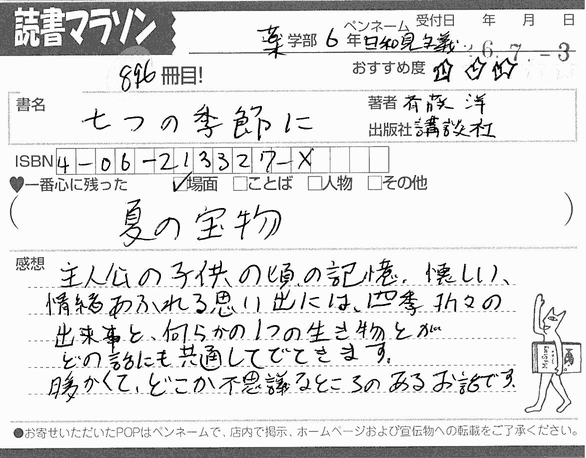 読書マラソン
薬学部 6年 ペンネーム 日和見主義 受付日 年 月 日
6.7.-3
896冊目!
おすすめ度
書名 七つの季節に
著者 斉藤 洋
出版社 講談社
ISBN 4-06-213327-X
♥一番心に残った ☑場面 □ことば □人物 □その他
(夏の宝物)
感想 主人公の子供の頃の記憶。懐しい、
情緒あふれる思い出には、四季折々の
出来事と、何らかの1つの生き物とが
どの話にも共通してでてきます。
暖かくて、どこか不思議なところのあるお話です。
●お寄せいただいたPOPはペンネームで、店内で掲示、ホームページおよび宣伝物への転載をご了承ください。